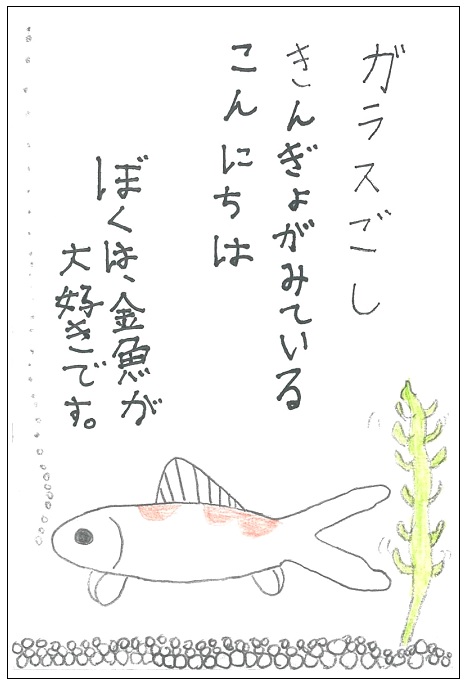 ガラスごし
きんぎょがみている
こんにちは
ぼくは、金魚が
大好きです。